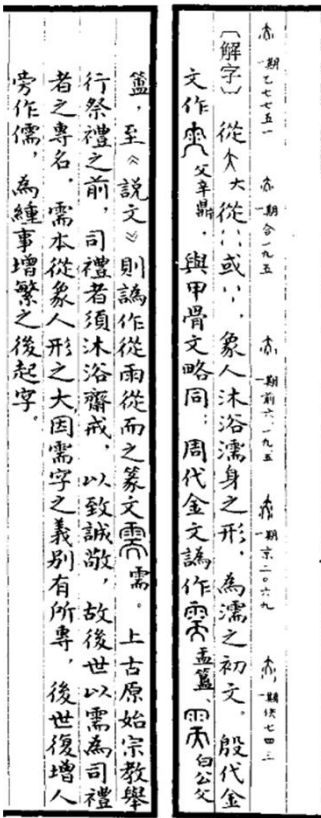 一期乙七七五一 一期合一九五 一期前六·一九·五 一期京二〇六九 一期佚七四三
〔解字〕從大從八或八，象人沐浴濡身之形，為濡之初文。殷代金
文作父辛鼎，與甲骨文略同；周代金文譌作盂簋、白公父
簠，至《說文》則譌作從雨從而之篆文需。上古原始宗教舉
行祭禮之前，司禮者須沐浴齋戒，以致誠敬，故後世以需為司禮
者之專名。需本從象人形之大因需字之義別有所專，後世復增人
旁作儒，為緟事增繁之後起字。